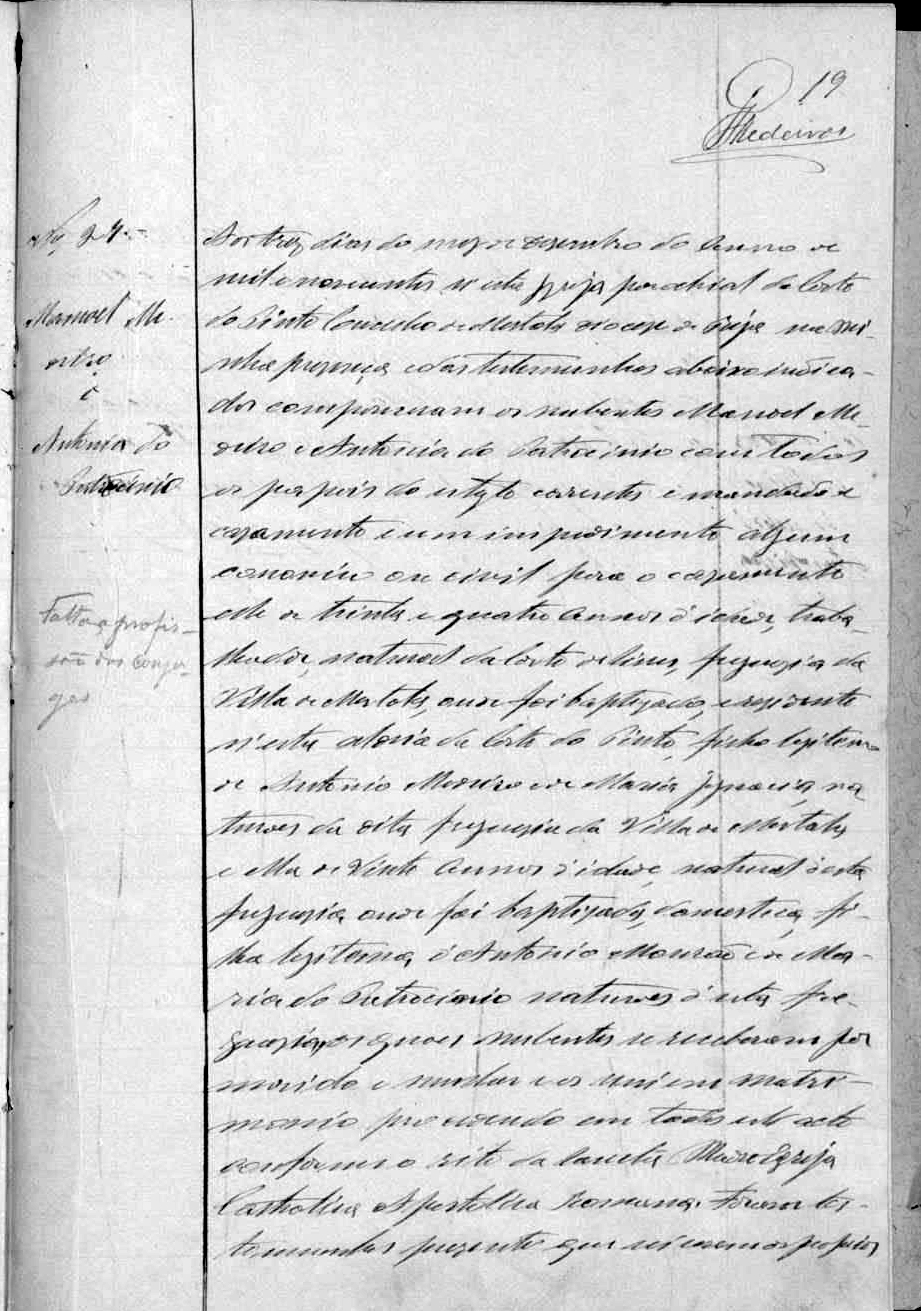 19
Medeiros
Nº 24
Manoel Me-
deiro
e
Antonia do
Patrocinio
Falta a profis-
são dos conju-
ges
Aos trez dias do mez de Dezembro do Anno de
mil e novecentos n'esta Igreja parochial da Corte
do Pinto Concelho de Mertola diocese de Beja na mi-
nha presença e das testemunhas abaixo indica-
das compareceram os nubentes Manoel Me-
deiro e Antonia do Patrocinio com todos
os papeis do estylo correntes e mandado de
casamento e sem impedimento algum
canonico ou civil para o casamento
elle de trinta e quatro Annos d'idade, traba-
lhador, natural da Corte freguezia da
Villa de Mertola, onde foi baptizado, e residente
n'esta aldeia da Corte do Pinto, filho legitimo
de Antonio Medeiro e de Maria Ignacia, na
turaes da dita freguezia da Villa de Mertola
e ella de Vinte Annos d'idade, natural d'esta
freguezia, onde foi baptizada, domestica, fi-
lha legitima, d'Antonio Mourão e de Ma-
ria do Patrocinio naturaes d'esta fre-
guezia, os quaes nubentes se receberam por
marido e mulher e os uni em matri-
monio procedendo em todo este acto
conforme o rito da Santa Madre Egreja
Catholica Apostolica Romana. Foram tes-
temunhas presentes que sei serem os proprios